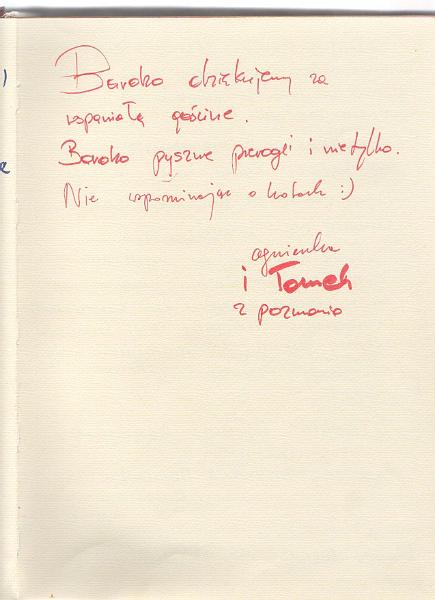 Bardzo dziękujemy za
wspaniałą gościnę.
Bardzo pyszne pierogi i nietylko.
Nie wspominając o kotach :)
Agnieszka
i Tomek
z Poznania